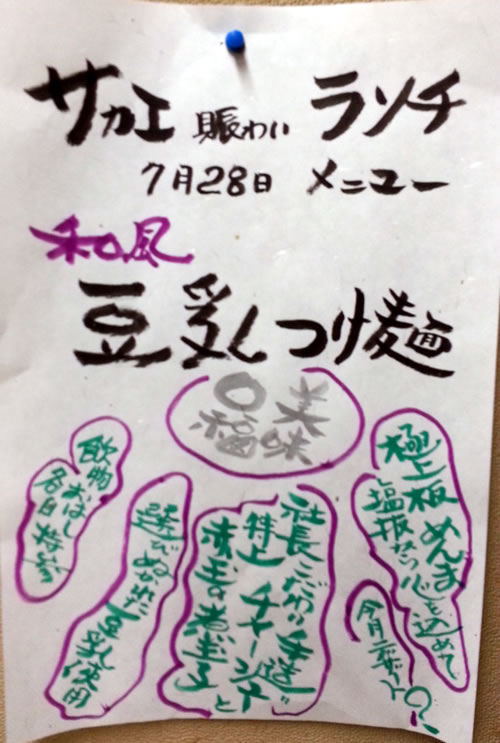 サカエ 賑わい ランチ
7月28日 メニュー
和風
豆乳つけ麺
美味
口福
極上板めんま
と塩板なら心を込めて
今月デザート?
社長こだわり手造
特上チャーシューと
味玉の煮玉子
選びぬかれた
豆乳使用
飲物おはし
各自持参